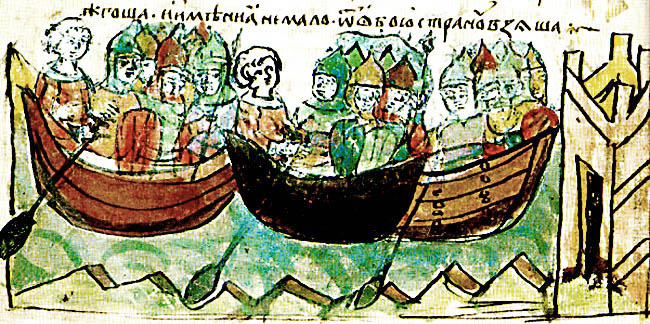 жгоша · и имѣниꙗ немало · ѿ ѡбою страноу взѧша